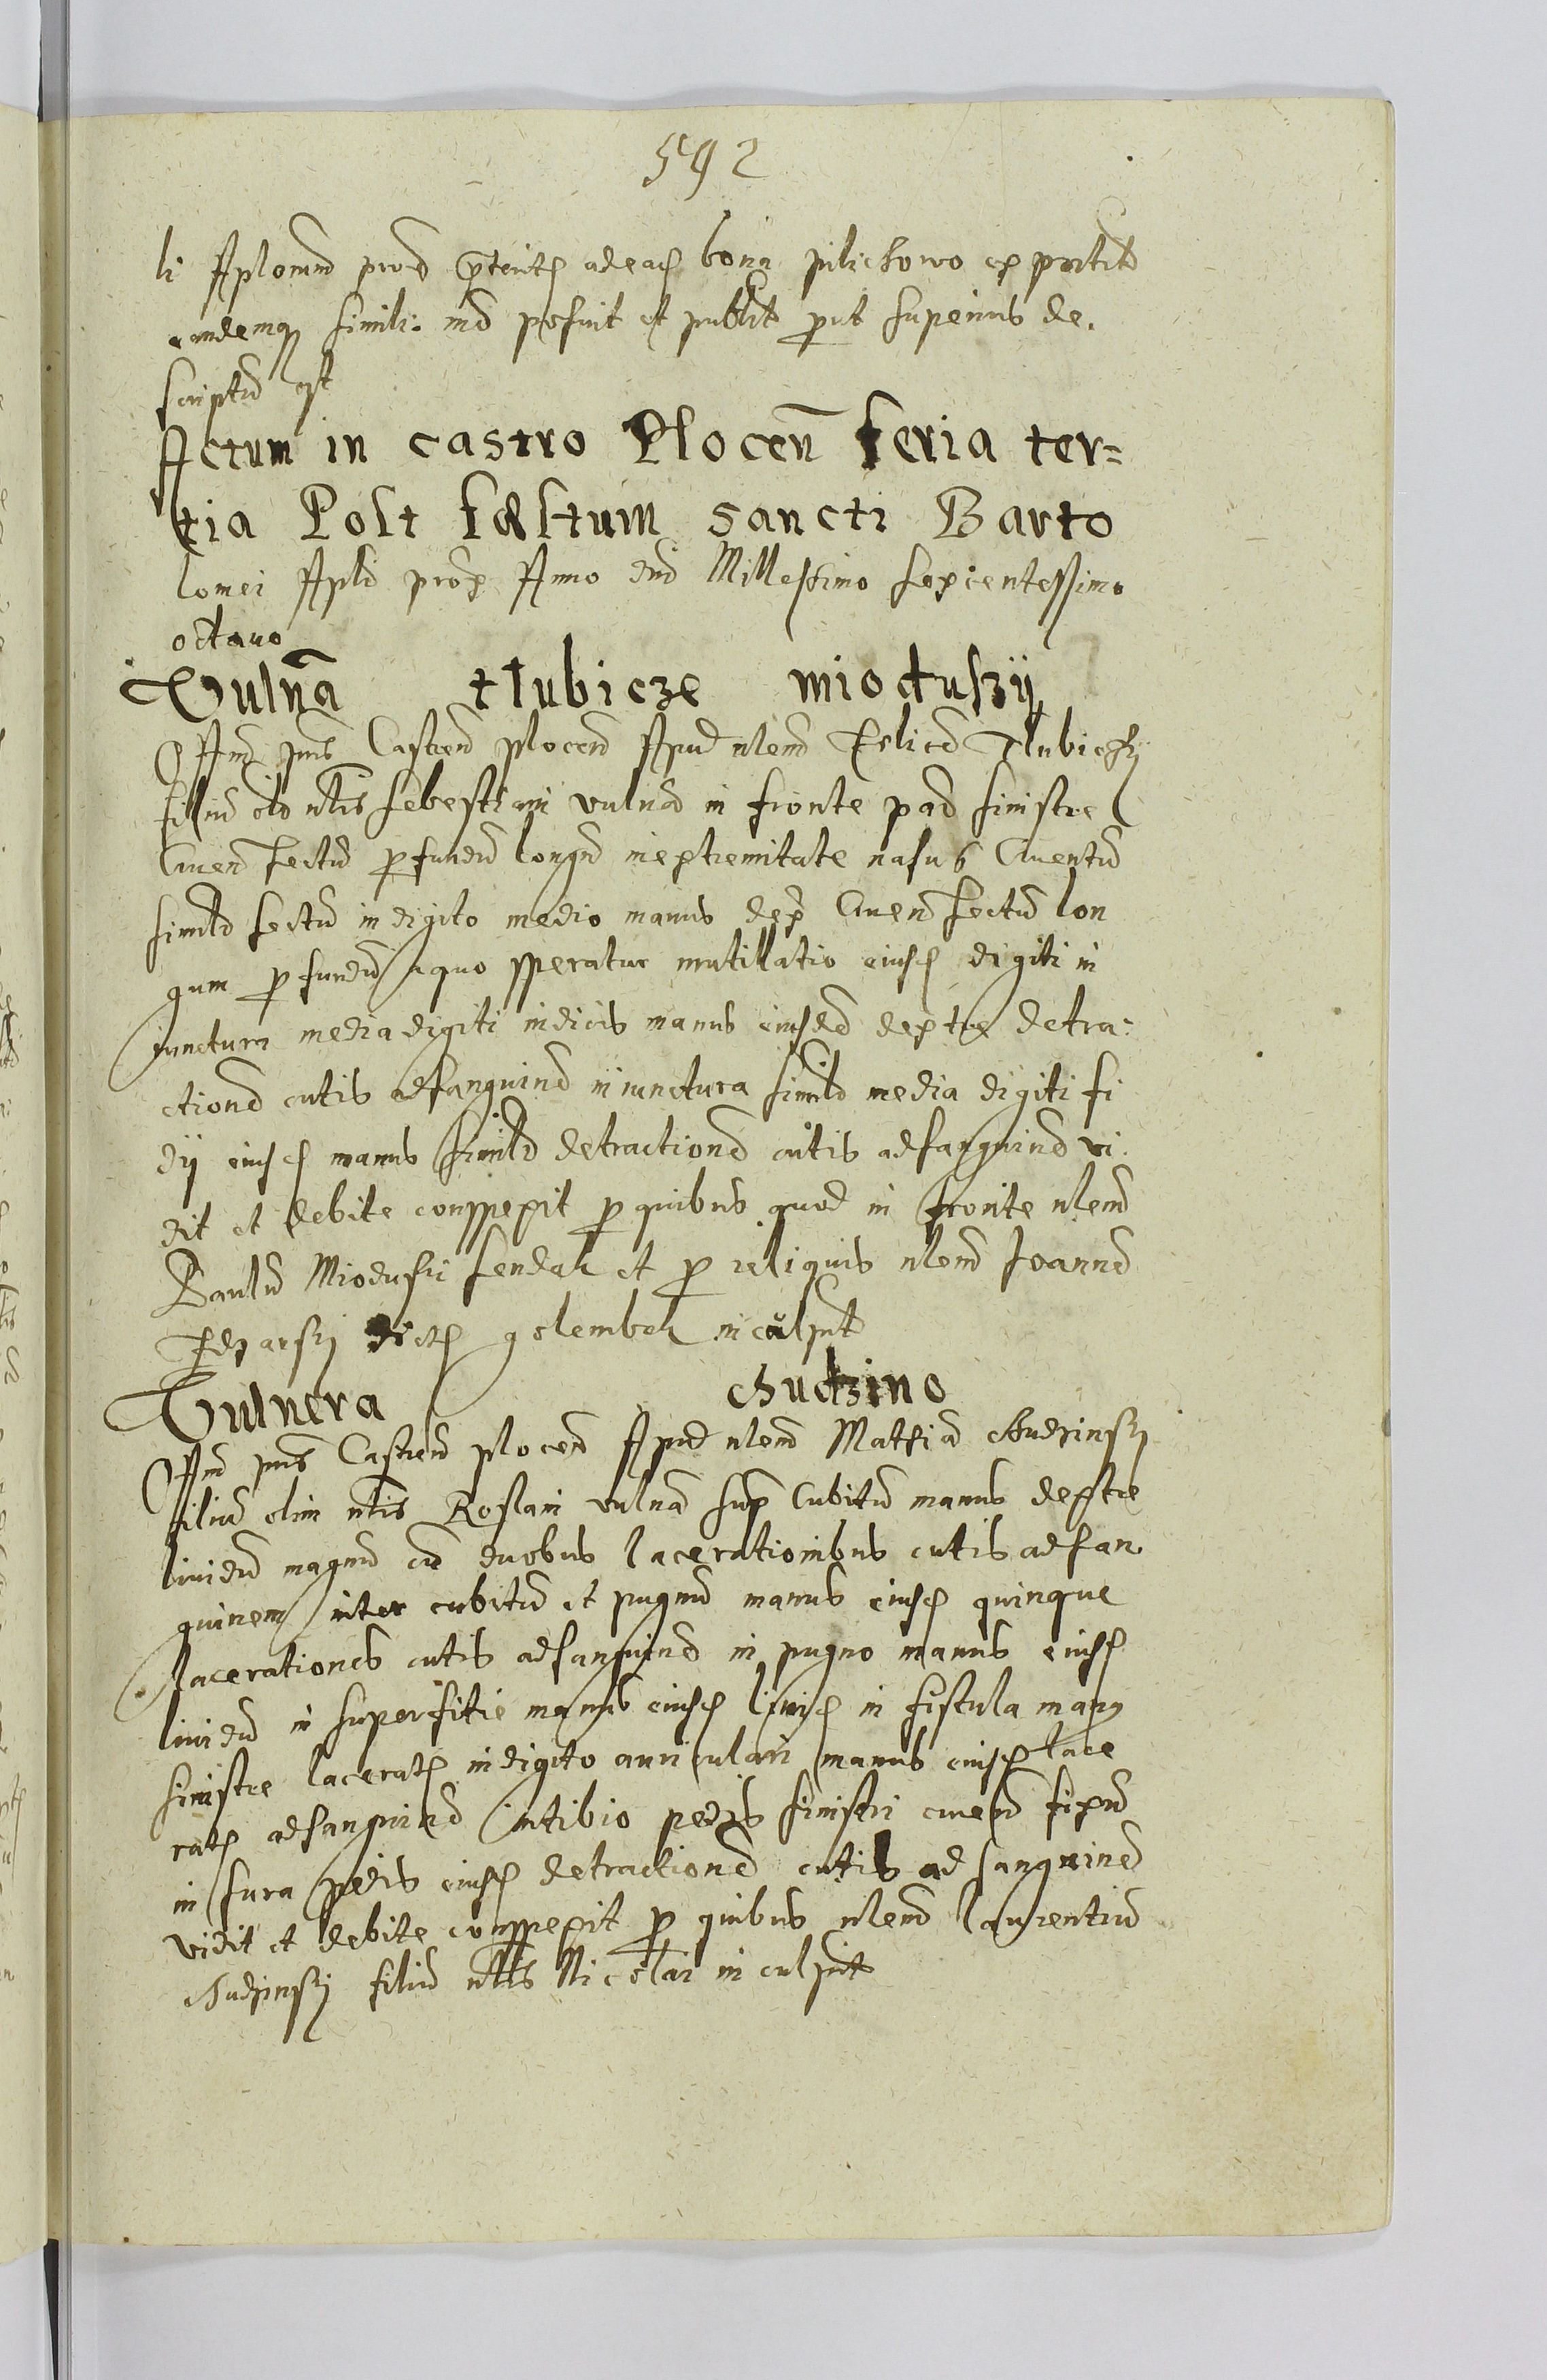 592
li Aplorum prox p̄tent adeas bona pilichowo ex portit
eandemq simili: md posuit et publit put superius de.
scriptū est
Actum in castro Plocen̄ feria ter=
tia Post fæstum sancti Barto
lomei Apli prox Anno dni Millesimo sexcentessimo
octauo
Vulnā tlubicze mioduszÿ
Am̄ pns Castren plocen Apud nlem Felicē Tlubicky
filiū oli nlis sebestiani vulnā in fronte pad sinistre
Cruen sectū p fundū longū in extremitate nasus Cruentū
similr sectū in digito medio manus dex Cruen sectū lon
gum p fundū aquo speratur mutillatio eiusd digiti in
iunctura media digiti indicis manus eiusdē dextre detra:
ctionē cutis ad sanguinē in iunctura similr media digiti fi
dij eiusd manus similr detractionē cutis ad sanguinē vi.
dit et debite conspexit p quibus quod in fronte nlem
Paulū Mioduski sendek et p reliquis nlem Joannē
dictū golembek in culpat
Vulnera chudzino
Am̄ pns Castren plocen Apud nlem Mathiā Chudzinsky
filiū olim nlis Roslani vulnā sup Cubitū manus dextre
liuidū magnū cū duobus lacerationibus cutis ad san
guinem inter cubitū et pugnū manus eiusd quinque
lacerationes cutis ad sanguinē in pugno manus eiusd
liuidū in superfitie manus eiusd liuid in fistula mang
sinistre lacerat in digito auriculari manus eiusd lace
rat ad sanguinē in tibio pedis sinistri cruen fixū
in sura pedis eiusd detractionē cutis ad sanguinē
vidit et debite conspexit p quibus nlem laurentiū
Chudzinsky filiū nlis Nicolai in culpat